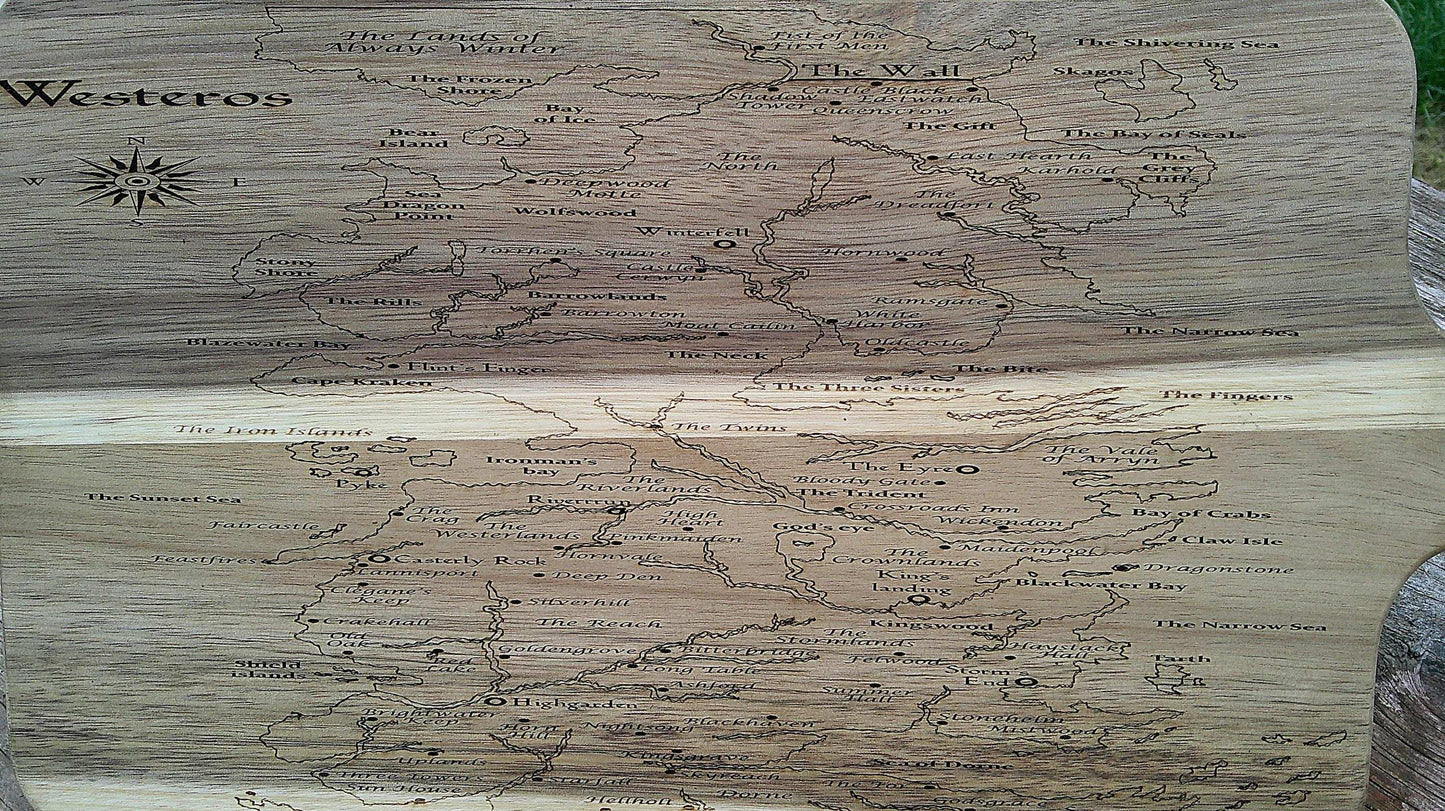 The Lands of
Always Winter
Fist of the
First Men
The Shivering Sea
The Wall
Skagos
The Frozen
Shore
Westeros
Castle Black
Shadow
Tower
Eastwatch
Queenscrow
Bay
of Ice
The Gift
Bear
Island
The Bay of Seals
N
W
E
S
The
North
Last Hearth
The
Grey
Cliffs
Karhold
Deepwood
Motte
Sea
Dragon
Point
Wolfswood
The
Dreadfort
Winterfell
Torrhen's Square
Hornwood
Stony
Shore
Castle
Cerwyn
The Rills
Barrowlands
Ramsgate
Barrowton
White
Harbor
Moat Cailin
The Narrow Sea
Blazewater Bay
Oldcastle
The Neck
Flint's Finger
The Bite
Cape Kraken
The Three Sisters
The Fingers
The Iron Islands
The Twins
The Vale
of Arryn
Ironman's
bay
The Eyre
Pyke
The
Riverlands
Bloody Gate
The Trident
The Sunset Sea
Riverrun
Crossroads Inn
The
Crag
High
Heart
Wickendon
Bay of Crabs
Faircastle
The
Westerlands
Pinkmaiden
God's eye
Claw Isle
Feastfires
Casterly Rock
Hornvale
The
Crownlands
Maidenpool
Lannisport
Deep Den
King's
landing
Dragonstone
Blackwater Bay
Clegane's
Keep
Silverhill
Crakehall
The Reach
Kingswood
The Narrow Sea
Old
Oak
The
Stormlands
Goldengrove
Bitterbridge
Haystack
Hall
Red
Lake
Felwood
Tarth
Shield
islands
Long Table
Storm
End
Ashford
Summer
Hall
Highgarden
Brightwater
Keep
Horn
Hill
Nightsong
Blackhaven
Stonehelm
Mistwood
Uplands
Kingsgrave
Sea of Dorne
Three Towers
Skyreach
Sun House
Starfall
The Tor
Hellholt
Dorne
Godsgrace